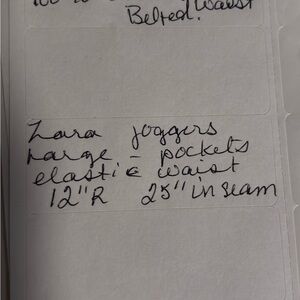 Waist
Belted.
Zara joggers
Large - pockets
elastic waist
12"R 25" in seam